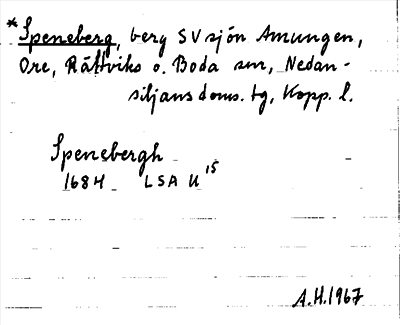 *Speneberg, berg SV sjön Amungen,
Ore, Rättviks o. Boda snr, Nedan-
siljans doms. tg, Kopp. l.
Spenebergh
1684 LSA U 15
A.H. 1967